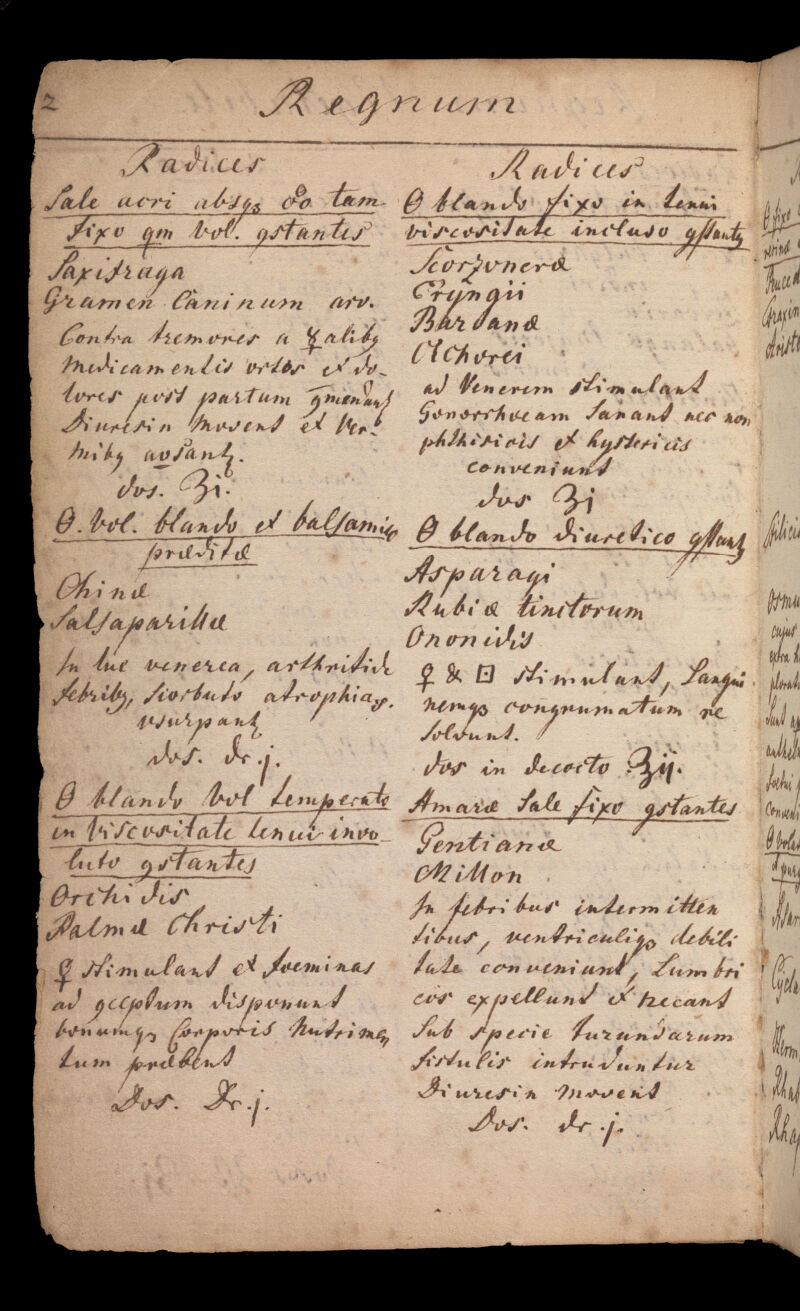 2
Regnum
Radices
Sale acri absqꝫ oleo tam
fixo qm vol. gstantes
Saxifraga
Gramen Caninum arv.
Contra tremores a ☿alibꝫ
medicamentis ortos et do-
lores post partum
Diuresin movent et Ver-
mibꝫ
dos. ʒi.
🜔. vol. blando et balsamico
præditæ
Chinæ
Salsaparillæ
In lue venerea, arthritide
febribꝫ, scorbuto atrophiaqꝫ.
usurpantꝫ
dos. dr. j.
🜔 blando vol temperato
in viscositate tenui invo-
luto gstantes
Orchidis
Palmæ Christi
♀ stimulant et foeminas
ad gceptum disponunt
bonumqꝫ Corporis Nutrimen
tum præbent
Dos. Dr. j.
Radices
🜔 blando fixo in tenui
viscositate incluso gstantꝫ
Scorzoneræ
Eryngii
Bardanæ
Cichorei
ad Venerem stimulant
Gonorrhoeam Sanant nec non
phthisicis et hystericis
conveniunt
dos ʒj
🜔 blando diuretico gstantꝫ
Asparagi
Rubiæ tinctorum
Ononidis
♀ & ⊡ stimulant, Sangui
nemqꝫ congrumatum re
solvunt.
dos in decocto ʒij.
Amaræ Sale fixo gstantes
Gentianæ
In febribus intermitten
tibus, ventriculiqꝫ debili
tate conveniunt, Lumbri
cos expellunt et necant
Sub specie turundarum
fistulis intruduntur
Diuresin movent
Dos. dr. j.